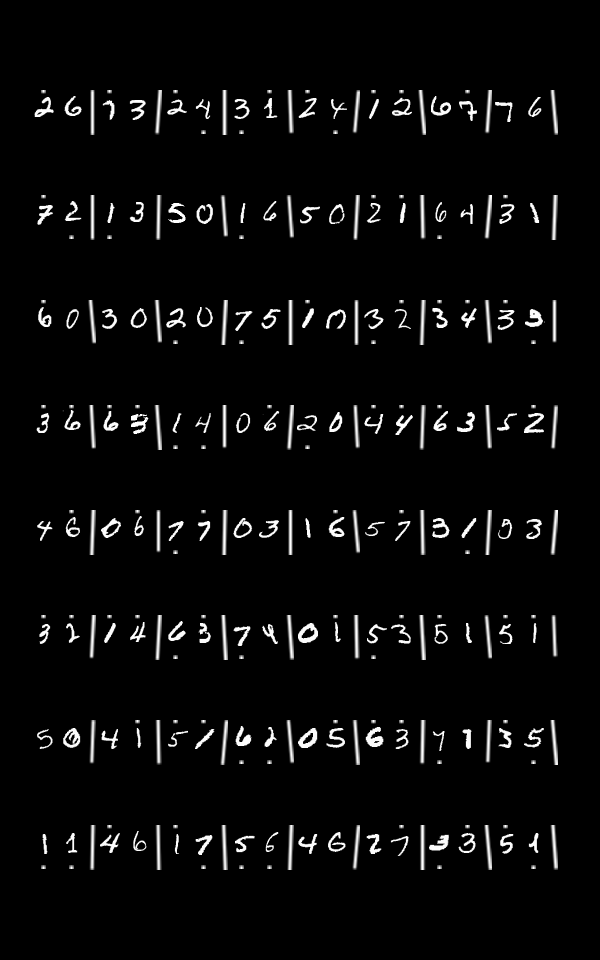 2 6 | 7 3 | 2 4 | 3 1 | 2 4 | 1 2 | 6 7 | 7 6 |
7 2 | 1 3 | 5 0 | 1 6 | 5 0 | 2 1 | 6 4 | 3 1 |
6 0 | 3 0 | 2 0 | 7 5 | 1 0 | 3 2 | 3 4 | 3 5 |
3 6 | 6 3 | 1 4 | 0 6 | 2 0 | 4 4 | 6 3 | 5 2 |
4 6 | 0 6 | 7 7 | 0 3 | 1 6 | 5 7 | 3 1 | 5 3 |
3 2 | 1 4 | 6 3 | 7 4 | 0 1 | 5 3 | 5 1 | 5 1 |
5 0 | 4 1 | 5 1 | 6 2 | 0 5 | 6 3 | 7 1 | 3 5 |
1 1 | 4 6 | 1 7 | 5 6 | 4 6 | 2 7 | 3 3 | 5 1 |